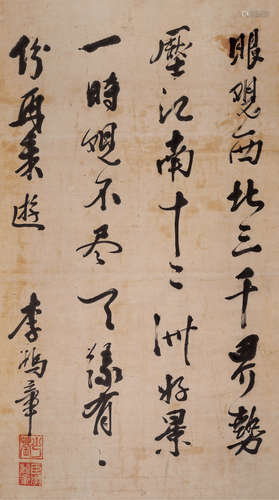 眼觀西北三千界勢
壓江南十二洲好景
一時觀不盡天緣有
份再來遊
李鴻章